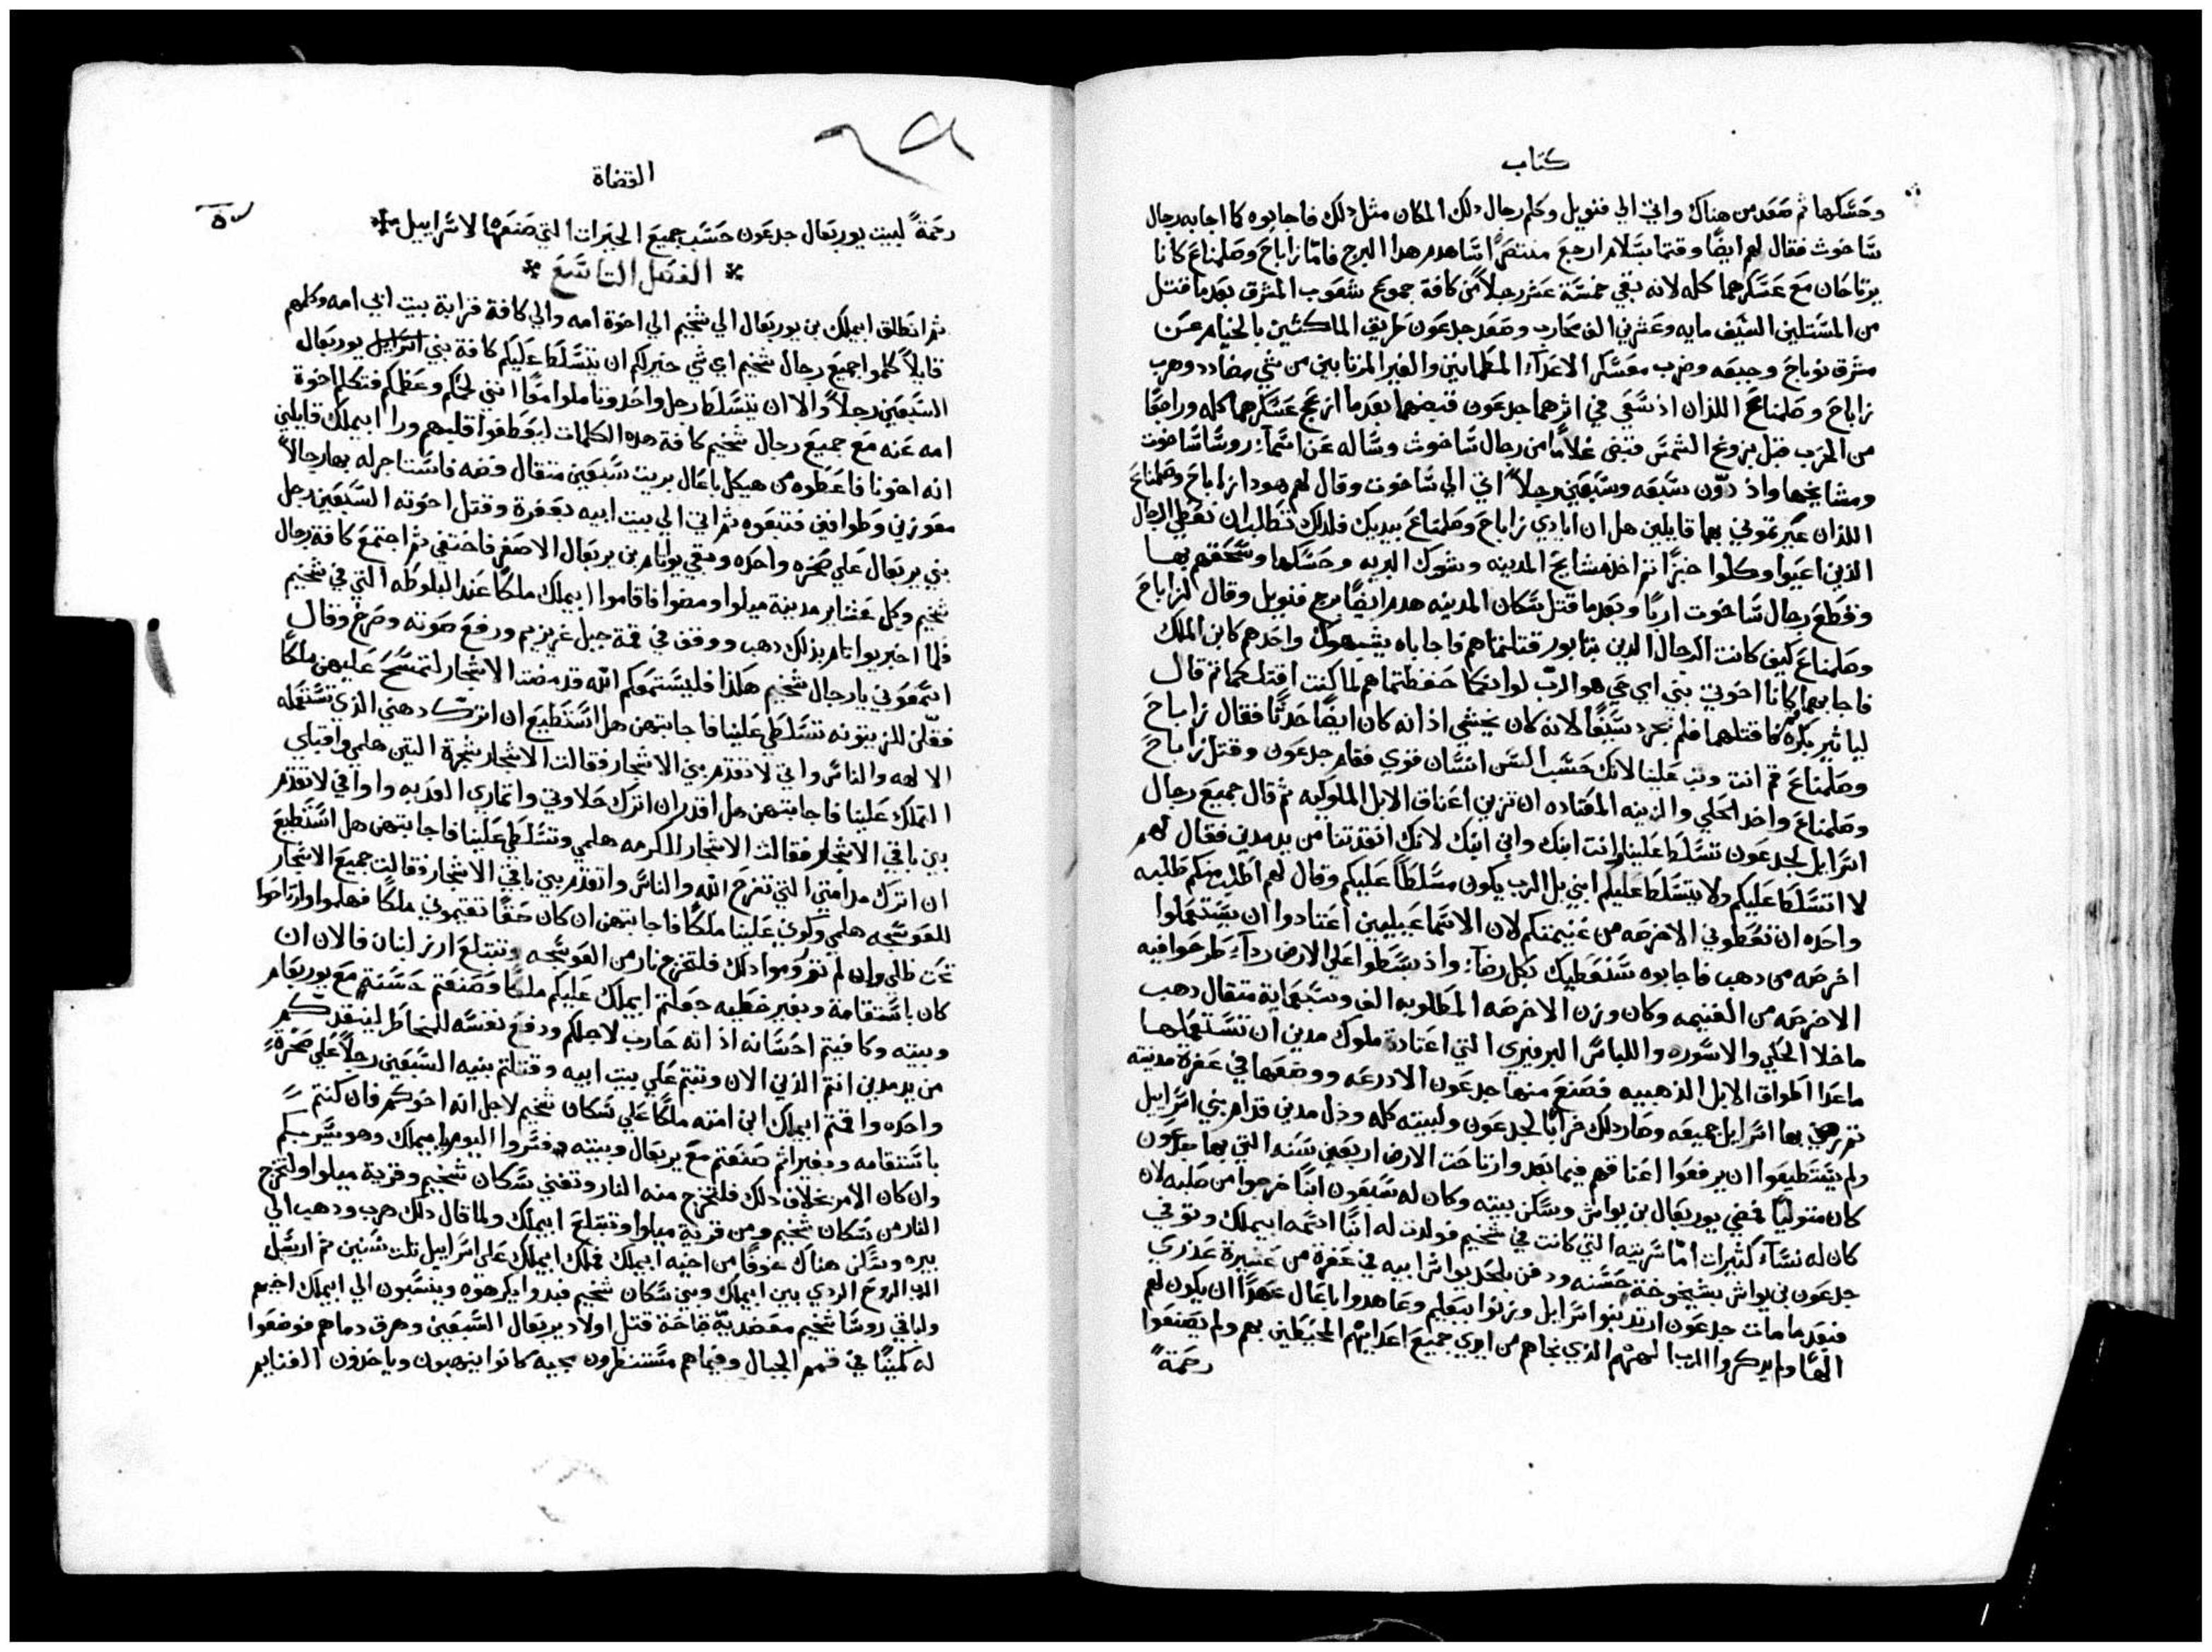 كتاب
وحسكها ثم صعد من هناك واتي الي فنويل وكلم رجال دلك المكان مثل دلك فاجابوه كما اجابه رجال
ساخوث فقال لهم ايضًا وقتما بسلام ارجع منتصرًا ساهدم هدا البرج فامّا زاباح وصلمناع كانا
يرتاحان مع عسكرهما كله لانه بقي خمسة عشر رجلاً من كافة جموع شعوب المشرق بعدما قتل
من المستلين السيف مايه وعشرين الف محارب وصعد جدعون طريق الماكثين بالخيام عن
مشرق نوباح وجبعه وضرب معسكر الاعداء المطمانين والغير المرتابين من شي مضادد وهرب
زاباح وصلمناع اللذان اذ سعي في اثرهما جدعون قبضهما بعدما ازعج عسكرهما كله وراجعًا
من الحرب قبل بزوغ الشمس قبض غلامًا من رجال ساخوث وساله عن اسماء روسا ساخوت
ومشايخها واذ دوّن سبعه وسبعين رجلاً اتي الي ساخوت وقال لهم هودا زاباح وصلمناع
اللذان عيرتموني بهما قايلين هل ان ايادي زاباح وصلمناع بيديك فلدلك تطلب ان نعطي الرجال
الذين اعيوا وكلوا خبزًا ثم اخذ مشايخ المدينه وشوك البريه وحسكها وسحقهم بها
وقطع رجال ساخوت اربًا وبعدما قتل سكان المدينه هدم ايضًا برج فنويل وقال لزاباح
وصلمناع كيف كانت الرجال الدين بتابور قتلتماهم فاجاباه يشبهوك واحدهم كابن الملك
فاجابهما كانا اخوتي بني امي حي هو الرب لو انكما حفظتماهم لما كنت اقتلكما ثم قال
لياثير بكره قم اقتلهما فلم يجرد سيفًا لانه كان يخشي اذ انه كان ايضًا حدثًا فقال زاباح
وصلمناع قم انت وثب علينا لانك حسب السن انسان قوي فقام جدعون وقتل زاباح
وصلمناع واخد الحلي والزينه المعتاده ان تزين اعناق الابل الملوكيه ثم قال جميع رجال
اسرايل لجدعون تسلط علينا انت ابنك وابن ابنك لانك انقدتنا من يد مدين فقال لهم
لا اتسلط عليكم ولا يتسلط عليكم ابني بل الرب يكون مسلطًا عليكم وقال لهم اطلب منكم طلبه
واحده ان تعطوني الاخرصه من غنيمتكم لان الاسماعيليين اعتادوا ان يستعملوا
اخرصه من دهب فاجابوه سنعطيك بكل رضاء واذ بسطوا علي الارض رداء طرحوا فيه
الاخرصه من الغنيمه وكان وزن الاخرصه المطلوبه الف وسبعماية مثقال دهب
ماخلا الحلي والاسوره واللباس البرفيري التي اعتادة ملوك مدين ان تستعملها
ماعدا اطواق الابل الذهبيه فصنع منها جدعون الادرعه ووضعها في عفرة مدينته
فزهي بها اسرايل جميعه وصار دلك خرابًا لجدعون ولبيته كله وذل مدين قدام بني اسراييل
ولم يستطيعوا ان يرفعوا اعناقهم فيما بعد وارتاحت الارض اربعين سنه التي بها جدعون
كان متوليًا فمضي يوربعال بن يواش وسكن بيته وكان له سبعون ابنًا خرجوا من صلبه لان
كان له نساء كثيرات امّا سريته التي كانت في شخيم فولدت له ابنًا اسمه ابيملك وتوفي
جدعون بن يواش بشيخوخة حسنه ودفن بلحد يواش ابيه في عفرة من عشيرة عذري
فبعدما مات جدعون ارتد بنوا اسرايل وزنوا ببعليم وعاهدوا باعال عهدًا ان يكون لهم
الهًا ولم يدكروا الرب الههم الذي نجاهم من ايدي جميع اعدايهم المحيطين بهم ولم يصنعوا
رحمةً
القضاة
رحمةً لبيت يوربعال جدعون حسب جميع الخيرات التي صنعها لاسراييل
* الفصل التاسع *
ثم انطلق ابيملك بن يوربعال الي شخيم الي اخوة امه والي كافة قرابة بيت ابي امه وكلمهم
قايلاً كلموا جميع رجال شخيم اي شي خير لكم ان يتسلط عليكم كافة بني اسرايل يوربعال
السبعين رجلاً والا ان يتسلط رجل واحد وتاملوا معًا انني لحمكم وعظمكم فتكلم اخوة
امه عنه مع جميع رجال شخيم كافة هده الكلمات ليعطفوا قلبهم ورا ابيملك قايلين
انه اخونا فاعطوه من هيكل باعال بريت سبعين مثقال فضه فاستاجر له بها رجالاً
معوزين وطوافين فتبعوه ثم اتي الي بيت ابيه بعفرة وقتل اخوته السبعين رجل
بني يربعال علي صخره واحده وبقي يواثام بن يربعال الاصغر فاختفي ثم اجتمع كافة رجال
شخيم وكل عشاير مدينة ميلوا ومضوا فاقاموا ابيملك ملكًا عند البلوطه التي في شخيم
فلما اخبر يواثام بذلك دهب ووقف في قمة جبل غريزيم ورفع صوته وصرخ وقال
اسمعوني يا رجال شخيم هكذا فليستمعكم الله قد مضت الاشجار لتمسح عليهن ملكًا
فقلن للزيتونه تسلطي علينا فاجابتهن هل استطيع ان اترك دهني الذي تستعمله
الالهه والناس واتي لاتقدم بين الاشجار فقالت الاشجار لشجرة التين هلمي واقبلي
التملك علينا فاجابتهن هل اقدر ان اترك حلاوتي واثماري العدبه واوافي لاتقدم
بين باقي الاشجار فقالت الاشجار للكرمه هلمي وتسلطي علينا فاجابتهن هل استطيع
ان اترك مدامتي التي تفرح الله والناس واتقدم بين باقي الاشجار فقالت جميع الاشجار
للعوسجه هلمي وكوني علينا ملكًا فاجابتهن ان كان حقًا تقيموني ملكًا فهلموا وارتاحوا
تحت ظلي وان لم تروموا دلك فلتخرج نار من العوسجه وتبتلع ارز لبنان فالان ان
كان باستقامة وبغير خطيه جعلتم ابيملك عليكم ملكًا وصنعتم حسنتم مع يوربعام
وبيته وكافيتم احسانه اذ انه حارب لاجلكم ودفع نفسه للمخاطر لينقدكم
من يد مدين انتم الذين الان وثبتم علي بيت ابيه وقتلتم بنيه السبعين رجلاً علي صخرةٍ
واحده واقمتم ابيملك ابن امته ملكًا علي سكان شخيم لاجل انه اخوكم فان كنتم
باستقامه وبغير اثم صنعتم مع يربعال وبيته فسروا اليوم بابيملك وهو يسر بكم
وان كان الامر بخلاف دلك فلتخرج منه النار وتفني سكان شخيم وقرية ميلوا ولتخرج
النار من سكان شخيم ومن قرية ميلوا وتبتلع ابيملك ولما قال دلك هرب ودهب الي
بيره وسكن هناك خوفًا من اخيه ابيملك فملك ابيملك علي اسراييل ثلث سنين ثم ارسل
الرب الروح الردي بين ابيملك وبين سكان شخيم فبدوا يكرهوه وينسبون الي ابيملك اخيهم
ولباقي روسا شخيم معضديه قباحة قتل اولاد يربعال السبعين وهرق دماهم فوضعوا
له كمينًا في قمم الجبال وفيماهم مستنظرون مجيه كانوا ينهبون وياخدون الغنايم